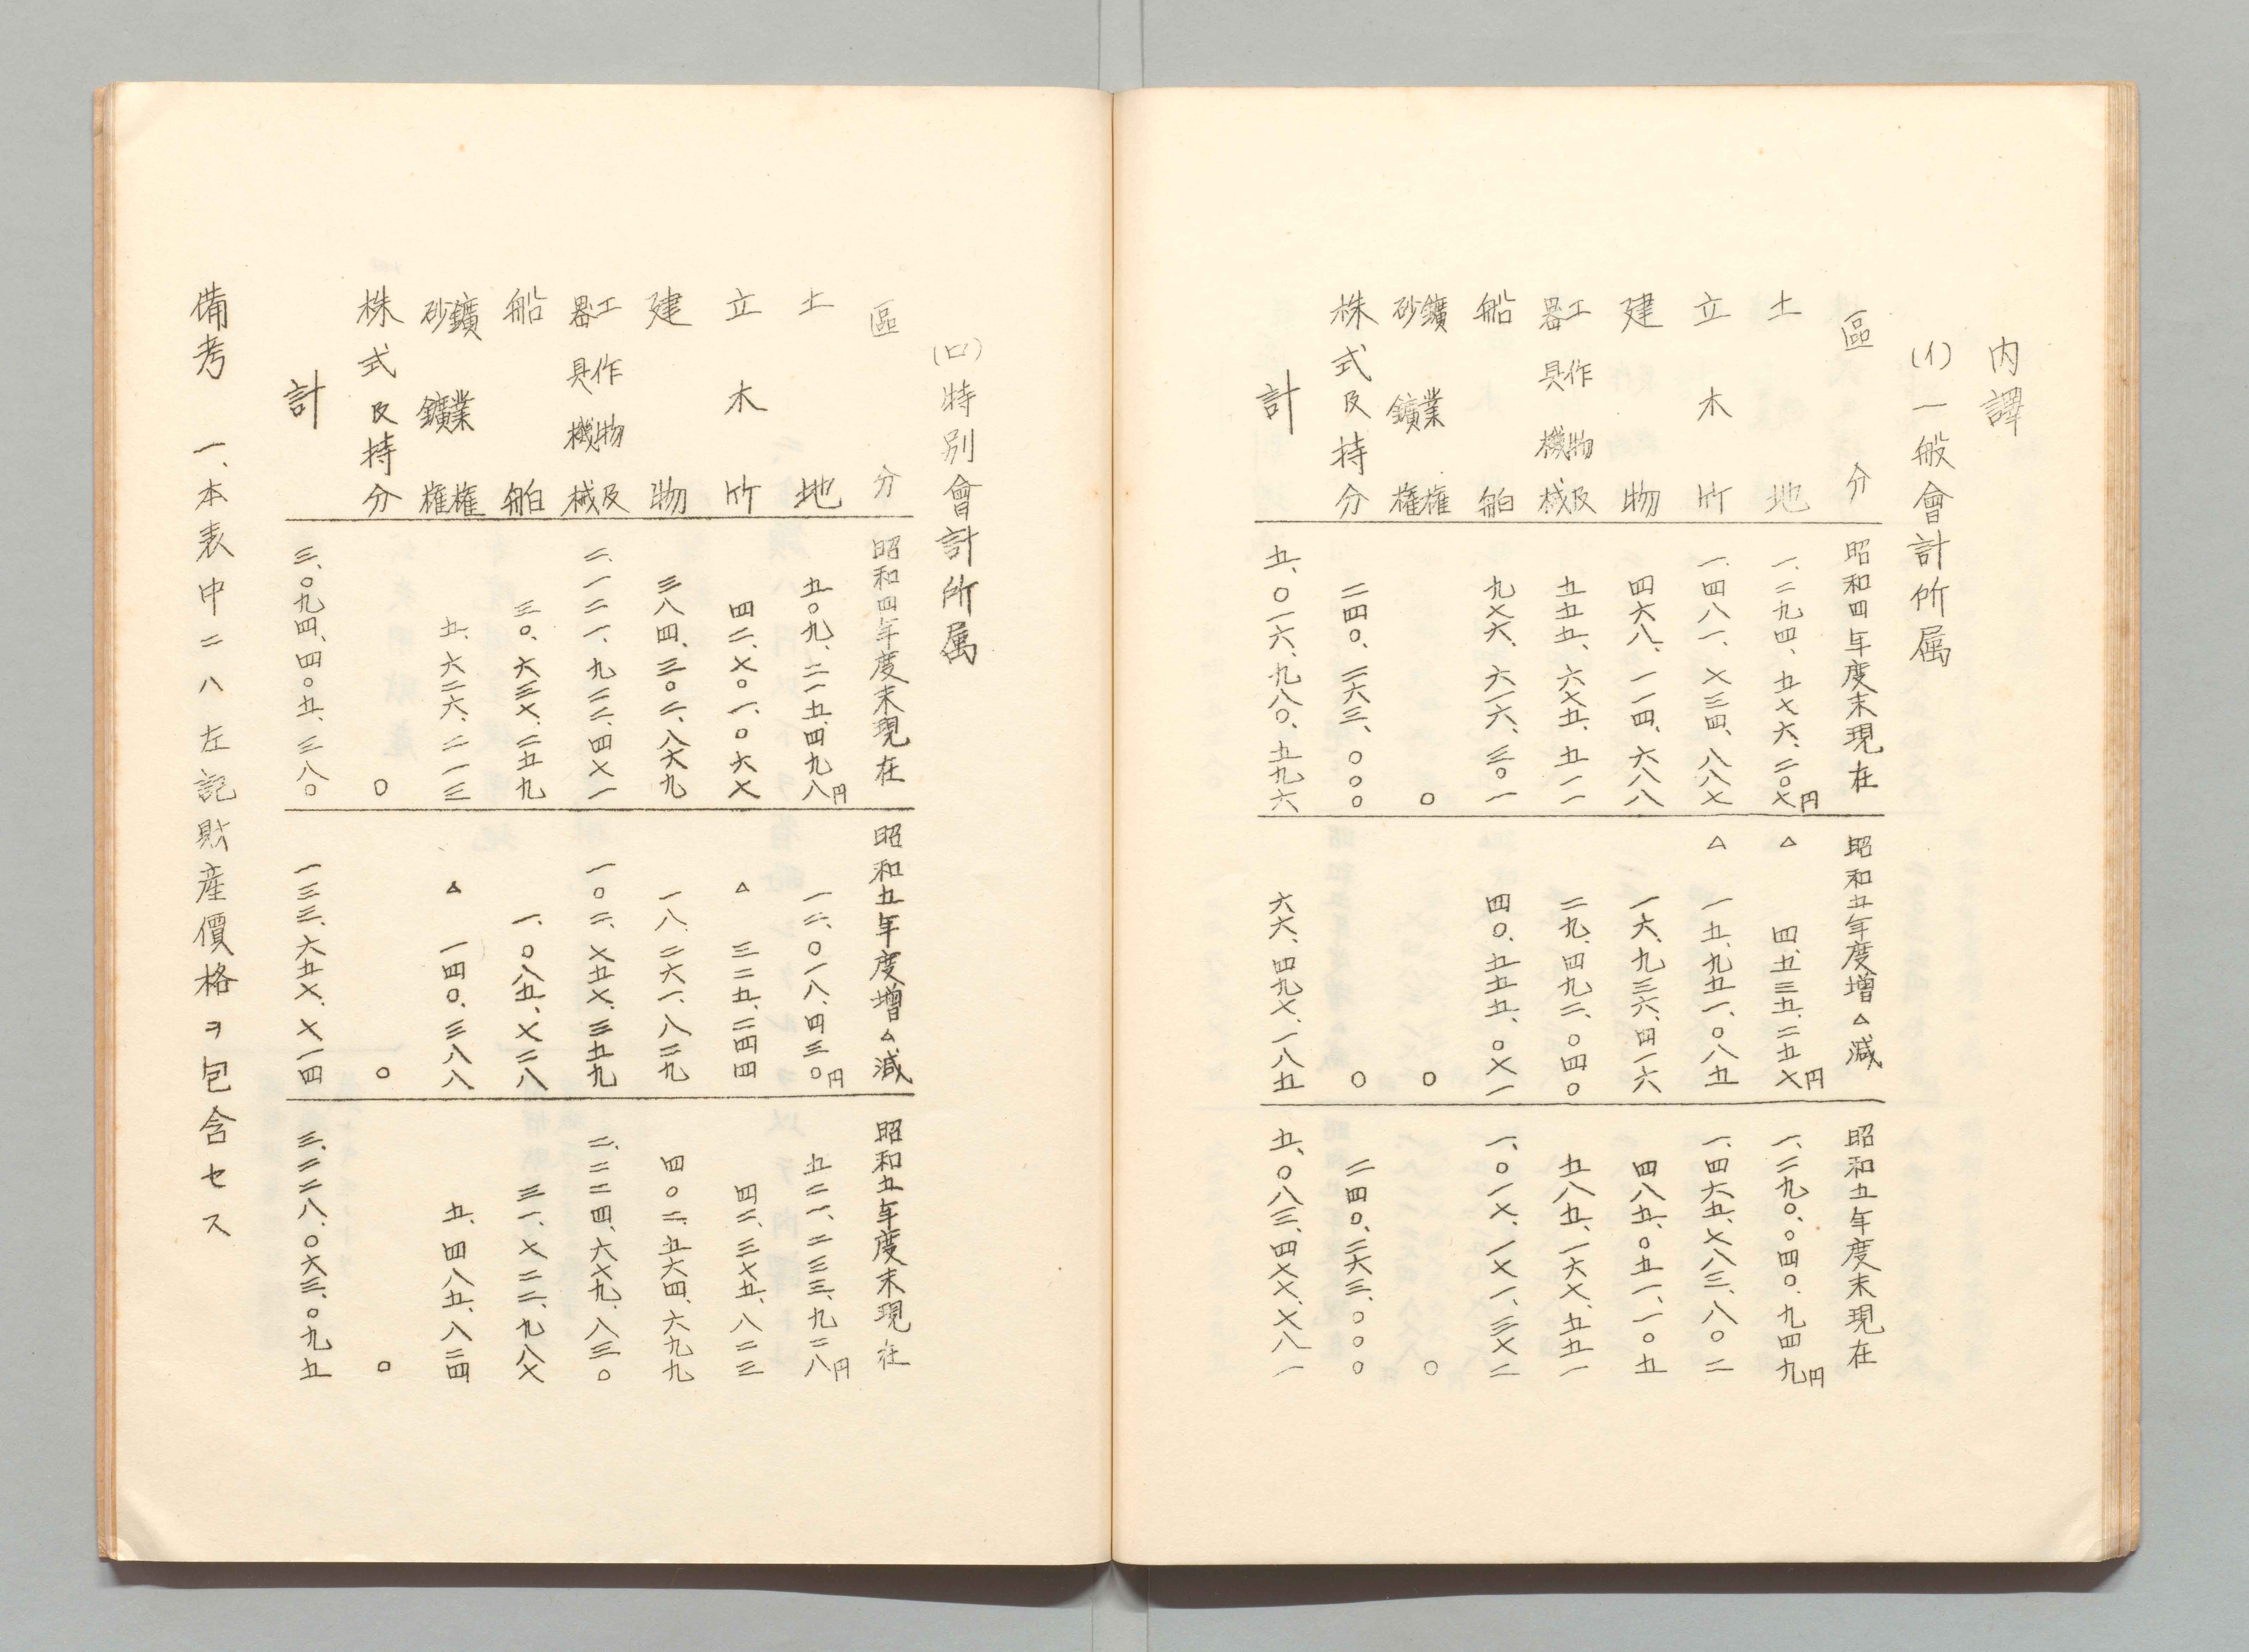 内譯
(イ)一般會計所属
區分 昭和四年度末現在 昭和五年度増△減 昭和五年度末現在
土地 一、二九四、五七六、二〇七円 △四、五三五、二五七円 一、二九〇、〇四〇、九四九円
立木竹 一、四八一、七三四、八八七 △一五、九五一、〇八五 一、四六五、七八三、八〇二
建物 四六八、一一四、六八八 一六、九三六、四一六 四八五、〇五一、一〇五
工作物及
器具機械 五五五、六七五、五一一 二九、四九二、〇四〇 五八五、一六七、五五一
船舶 九七六、六一六、三〇一 四〇、五五五、〇七一 一、〇一七、一七一、三七二
鑛業権
砂鑛権 〇 〇 〇
株式及持分 二四〇、二六三、〇〇〇 〇 二四〇、二六三、〇〇〇
計 五、〇一六、九八〇、五九六 六六、四九七、一八五 五、〇八三、四七七、七八一
(ロ)特別會計所属
區分 昭和四年度末現在 昭和五年度増△減 昭和五年度末現在
土地 五〇九、二一五、四九八円 一二、〇一八、四三〇円 五二一、二三三、九二八円
立木竹 四二、七〇一、〇六七 △三二五、二四四 四二、三七五、八二三
建物 三八四、三〇二、八六九 一八、二六一、八二九 四〇二、五六四、六九九
工作物及
器具機械 二、一二一、九二二、四七一 一〇二、七五七、三五九 二、二二四、六七九、八三〇
船舶 三〇、六三七、二五九 一、〇八五、七二八 三一、七二二、九八七
鑛業権
砂鑛権 五、六二六、二一三 △一四〇、三八八 五、四八五、八二四
株式及持分 〇 〇 〇
計 三、〇九四、四〇五、三八〇 一三三、六五七、七一四 三、二二八、〇六三、〇九五
備考 一、本表中ニハ左記財産價格ヲ包含セス